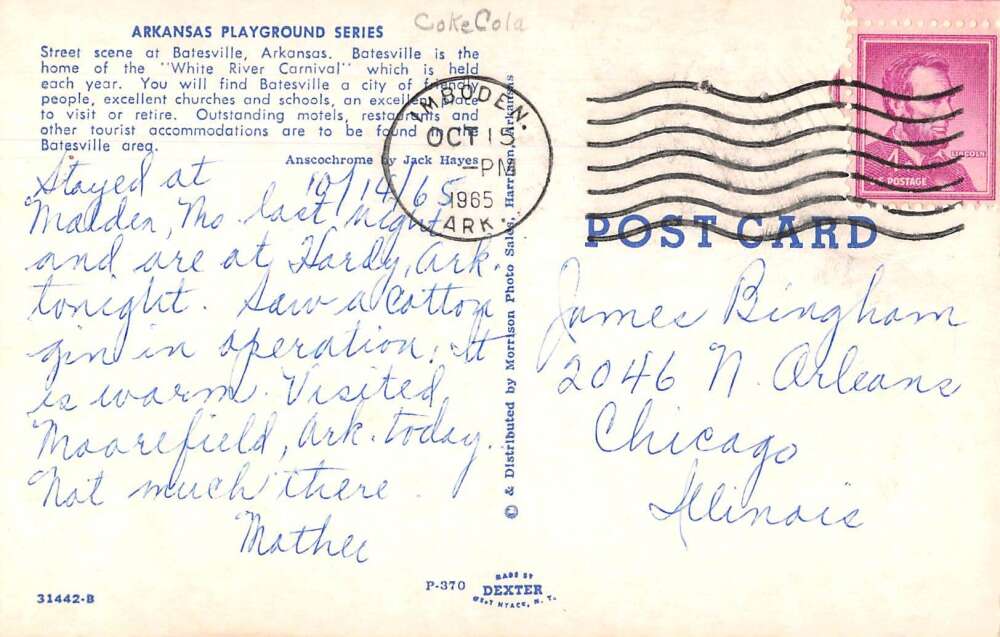 CokeCola
ARKANSAS PLAYGROUND SERIES
Street scene at Batesville, Arkansas. Batesville is the
home of the "White River Carnival" which is held
each year. You will find Batesville a city of friendly
people, excellent churches and schools, an excellent place
to visit or retire. Outstanding motels, restaurants and
other tourist accommodations are to be found in the
Batesville area.
Anscochrome by Jack Hayes
10/14/65
Stayed at
Malden, Mo last night
and are at Hardy, Ark.
tonight. Saw a cotton
gin in operation. It
is warm. Visited
Moorefield, Ark. today.
Not much there.
Mother
31442-B
P-370
MADE BY
DEXTER
WEST NYACK, N. Y.
© & Distributed by Morrison Photo Sales, Harrison, Arkansas
IMBODEN.
OCT 15
-PM
1965
ARK.
LINCOLN
4
U.S. POSTAGE
POST CARD
James Bingham
2046 N. Orleans
Chicago
Illinois